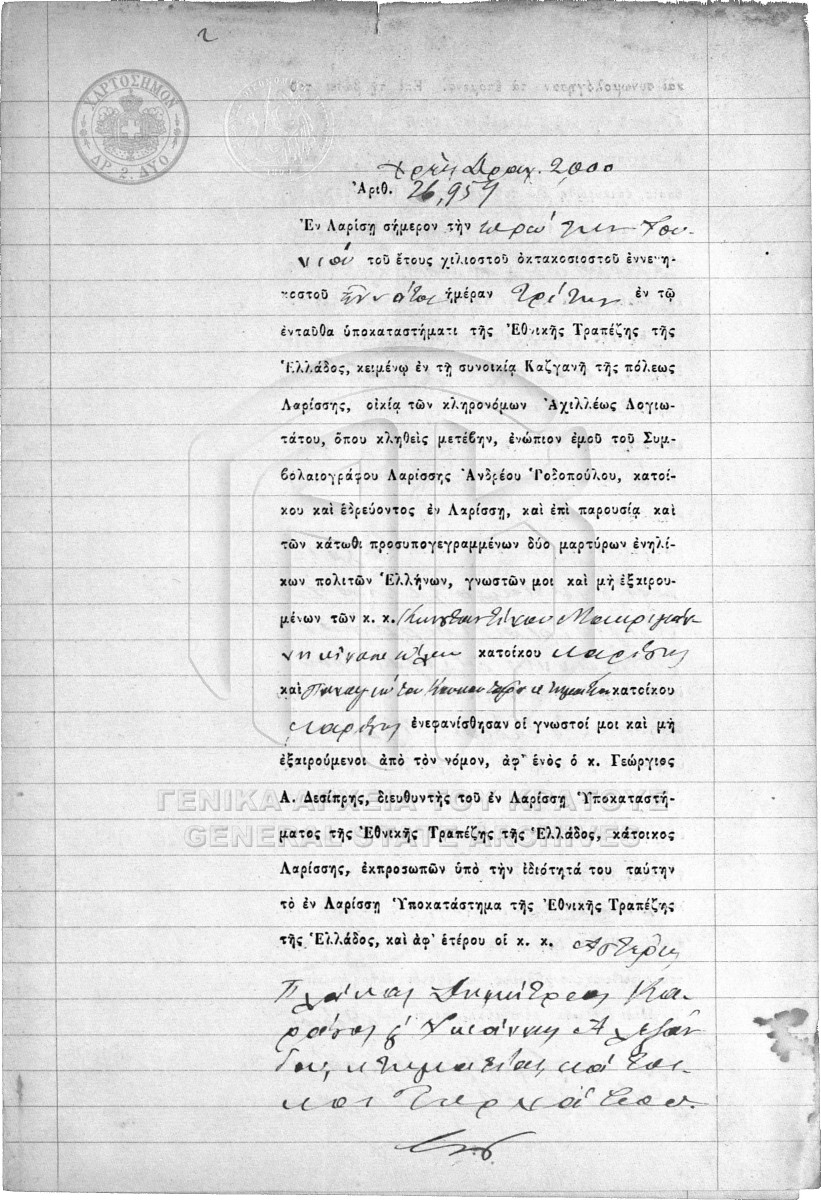 2
ΧΑΡΤΟΣΗΜΟΝ
ΔΡ. 2. ΔΥΟ
Δραχ. 2000
Ἀριθ. 26,957
Ἐν Λαρίσῃ σήμερον τὴν πρώτην Ἰου-
νίου τοῦ ἔτους χιλιοστοῦ ὀκτακοσιοστοῦ ἐννενη-
κοστοῦ ἐννάτου ἡμέραν Τρίτην ἐν τῷ
ἐνταῦθα ὑποκαταστήματι τῆς Ἐθνικῆς Τραπέζης τῆς
Ἑλλάδος, κειμένῳ ἐν τῇ συνοικίᾳ Καζγανῆ τῆς πόλεως
Λαρίσσης, οἰκίᾳ τῶν κληρονόμων Ἀχιλλέως Λογιω-
τάτου, ὅπου κληθεὶς μετέβην, ἐνώπιον ἐμοῦ τοῦ Συμ-
βολαιογράφου Λαρίσσης Ἀνδρέου Ῥοδοπούλου, κατοί-
κου καὶ ἑδρεύοντος ἐν Λαρίσσῃ, καὶ ἐπὶ παρουσίᾳ καὶ
τῶν κάτωθι προσυπογεγραμμένων δύο μαρτύρων ἐνηλί-
κων πολιτῶν Ἑλλήνων, γνωστῶν μοι καὶ μὴ ἐξαιρου-
μένων τῶν κ. κ. Κωνσταντίνου Μακρυγιάν-
νη κατοίκου Λαρίσης
καὶ Παναγιώτου κτηματίου κατοίκου
Λαρίσης ἐνεφανίσθησαν οἱ γνωστοί μοι καὶ μὴ
ἐξαιρούμενοι ἀπὸ τὸν νόμον, ἀφ' ἑνὸς ὁ κ. Γεώργιος
Α. Δεσίπρης, διευθυντὴς τοῦ ἐν Λαρίσσῃ Ὑποκαταστή-
ματος τῆς Ἐθνικῆς Τραπέζης τῆς Ἑλλάδος, κάτοικος
Λαρίσσης, ἐκπροσωπῶν ὑπὸ τὴν ἰδιότητά του ταύτην
τὸ ἐν Λαρίσσῃ Ὑποκατάστημα τῆς Ἐθνικῆς Τραπέζης
τῆς Ἑλλάδος, καὶ ἀφ' ἑτέρου οἱ κ. κ. Ἀστέριος
Δημήτριος Κα-
ράσος Ἰωάννης Ἀλεξάν
δρου, κτηματίαι, κάτοι-
κοι Τυρνάβου.
ΓΕΝΙΚΑ ΑΡΧΕΙΑ ΤΟΥ ΚΡΑΤΟΥΣ
GENERAL STATE ARCHIVES